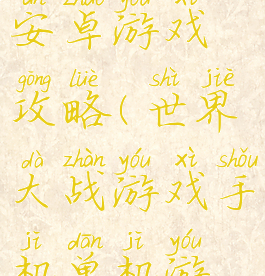 ān zhuó yóu xì
安卓游戏
gōng lüè shì jiè
攻略(世界
dà zhàn yóu xì shǒu
大战游戏手
jī dān jī yóu
机单机游